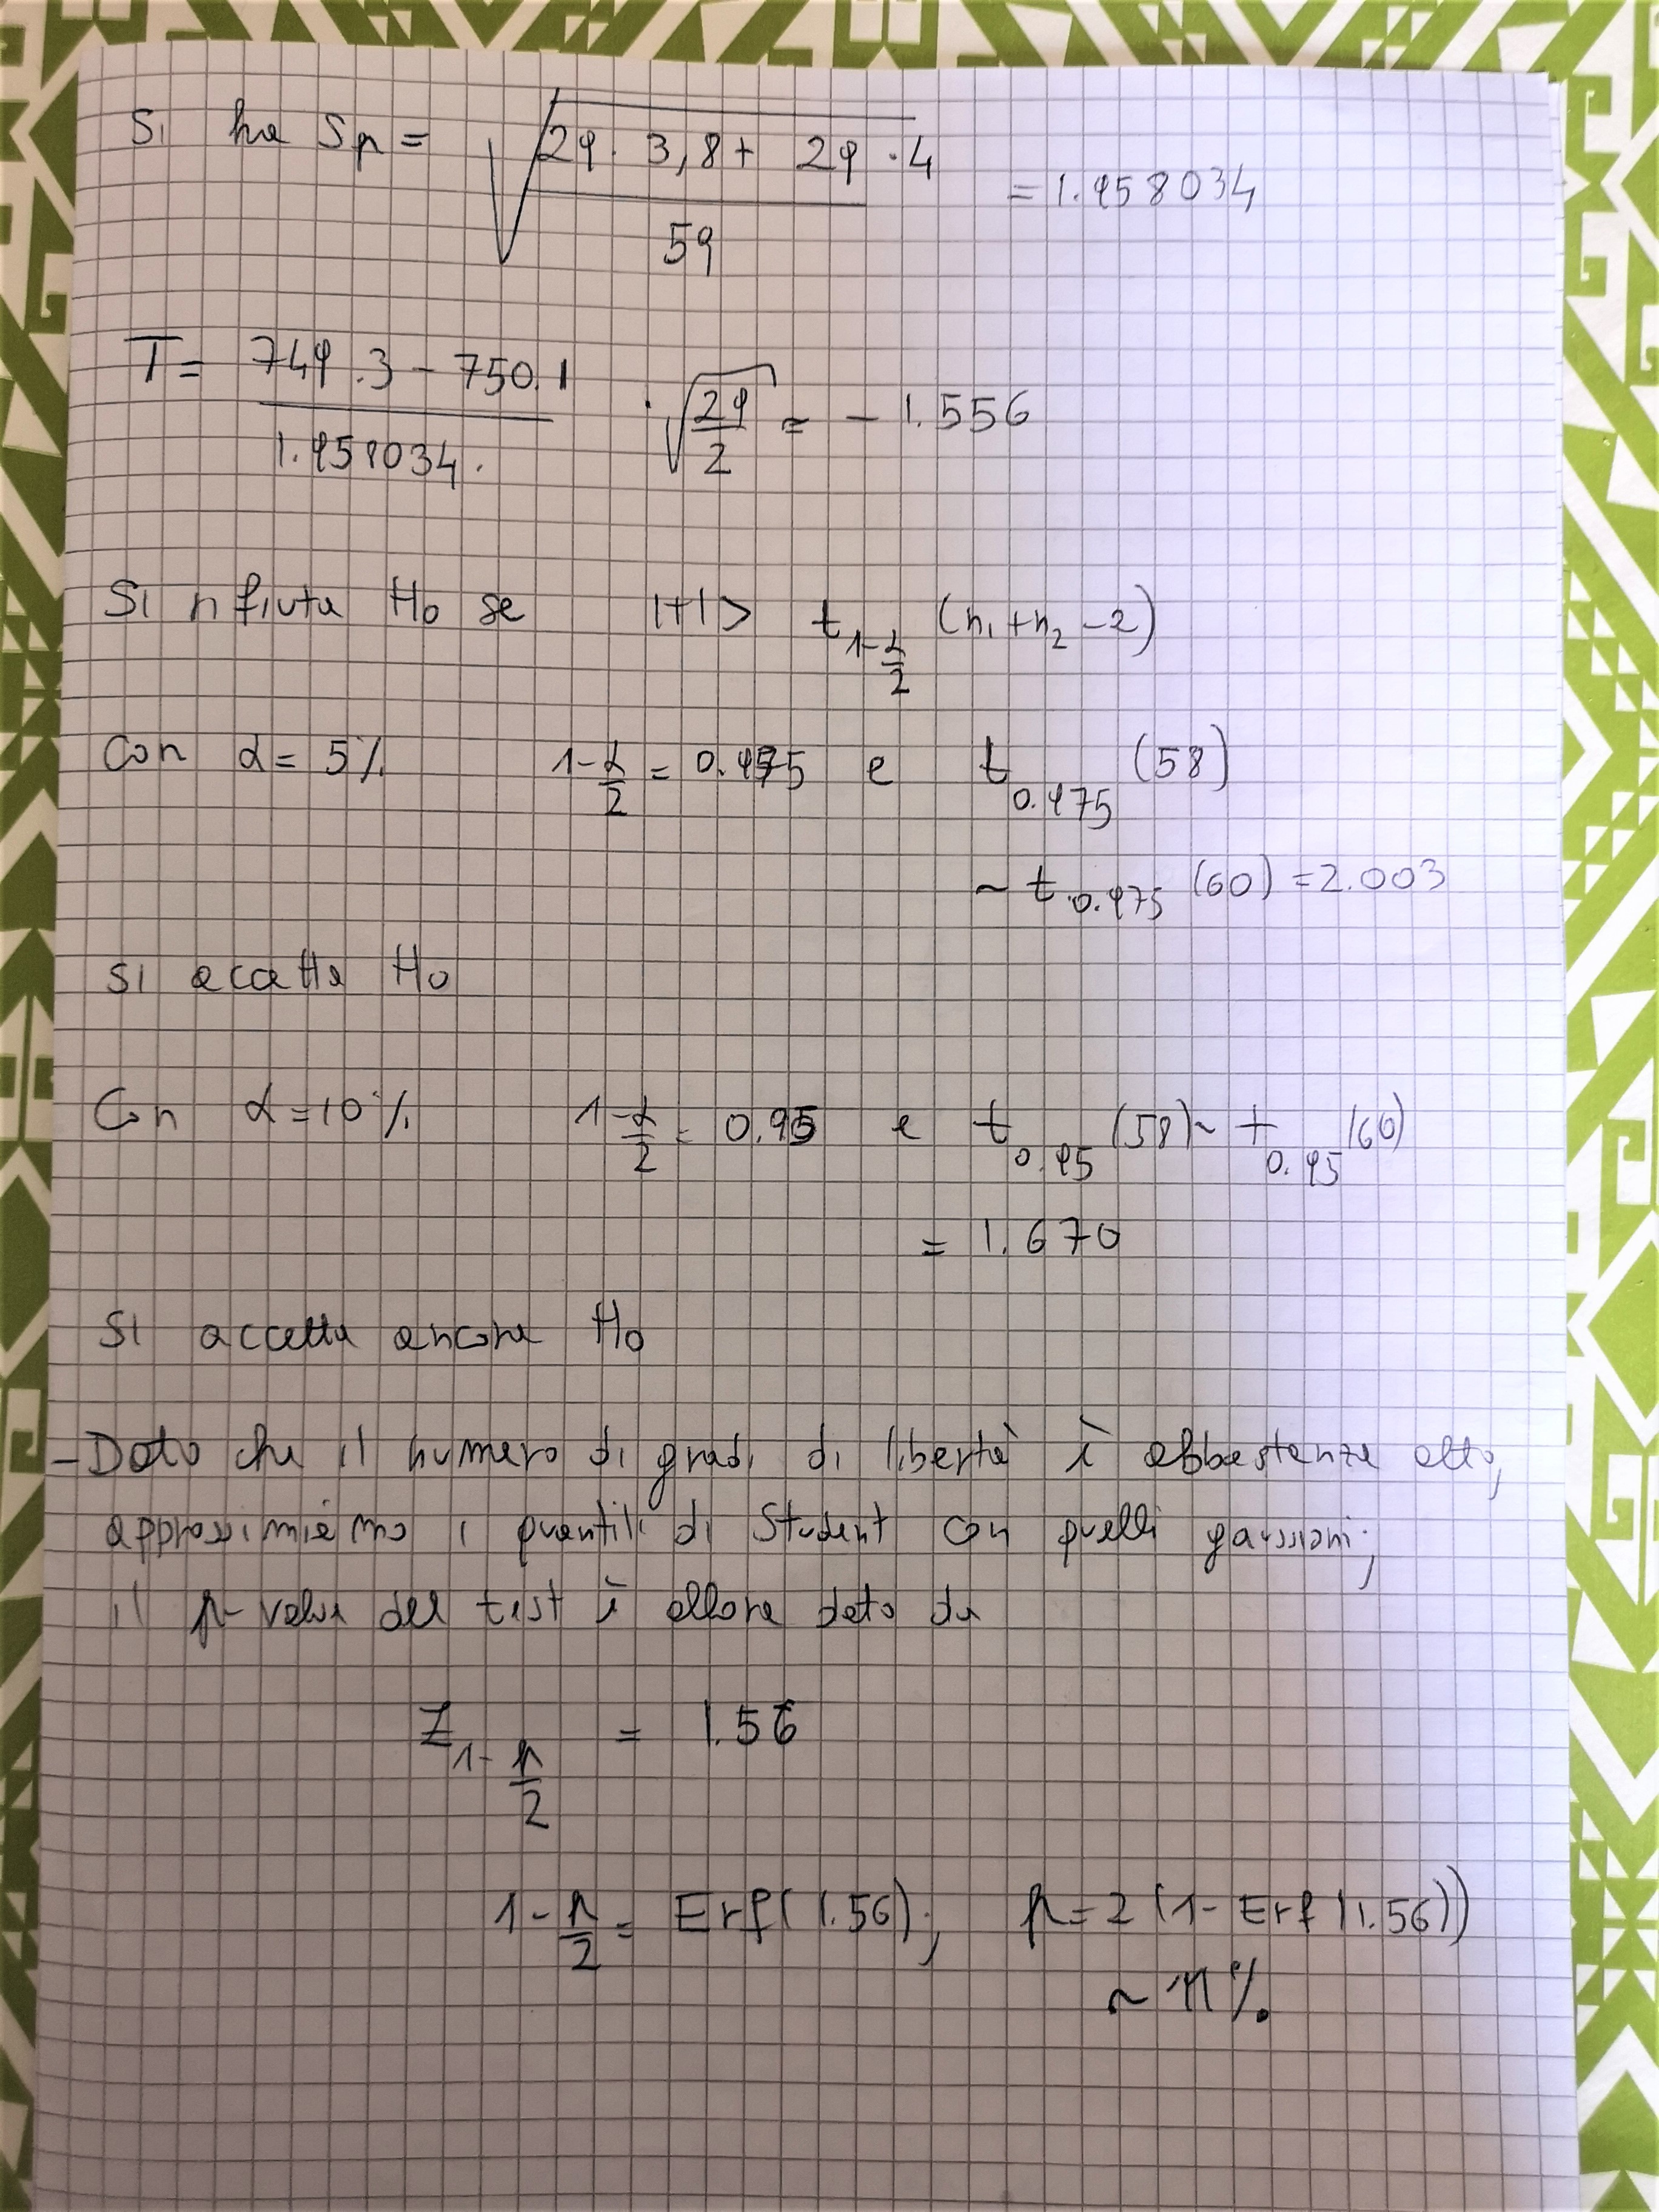 Si ha Sp = √(29 · 3,8 + 29 · 4 / 59) = 1.958034
T = 749.3 - 750.1 / 1.958034 · √(29/2) ≈ - 1.556
Si rifiuta H0 se |t| > t_{1-α/2} (n1 + n2 - 2)
Con α = 5% 1-α/2 = 0.975 e t_{0.975} (58)
~ t_{0.975} (60) = 2.003
si accetta H0
Con α = 10% 1-α/2 = 0.95 e t_{0.95} (58) ~ t_{0.95} (60)
= 1.670
Si accetta ancora H0
- Dato che il numero di gradi di libertà è abbastanza alto,
approssimiamo i quantili di Student con quelli gaussiani;
il p-value del test è allora dato da
Z_{1-p/2} = 1.56
1-p/2 = Erf(1.56); p = 2 (1 - Erf(1.56))
~ 11%.